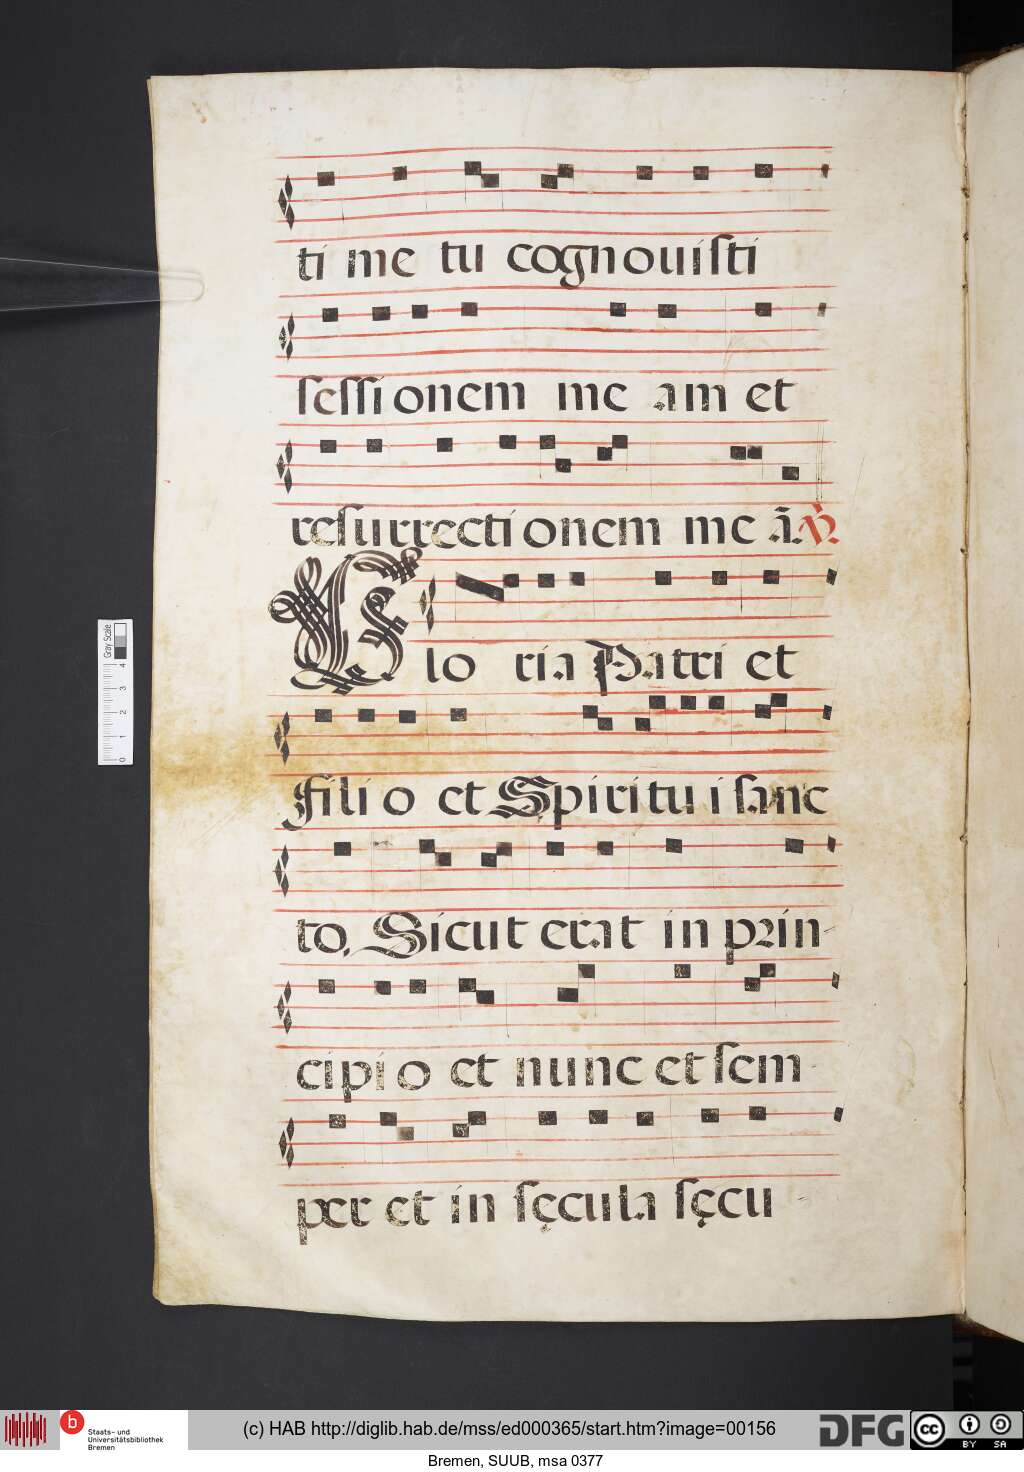 ti me tu cognouiſti
ſeſſionem me am et
reſurrectionem me ā.
Glo ria Patri et
Filio et Spiritui ſanc
to, Sicut erat in prin-
cipio et nunc et ſem-
per et in ſęcula ſęcu
Gray Scale
0 1 2 3 4
b
Staats- und
Universitätsbibliothek
Bremen
(c) HAB http://diglib.hab.de/mss/ed000365/start.htm?image=00156
DFG
cc BY SA
Bremen, SUUB, msa 0377